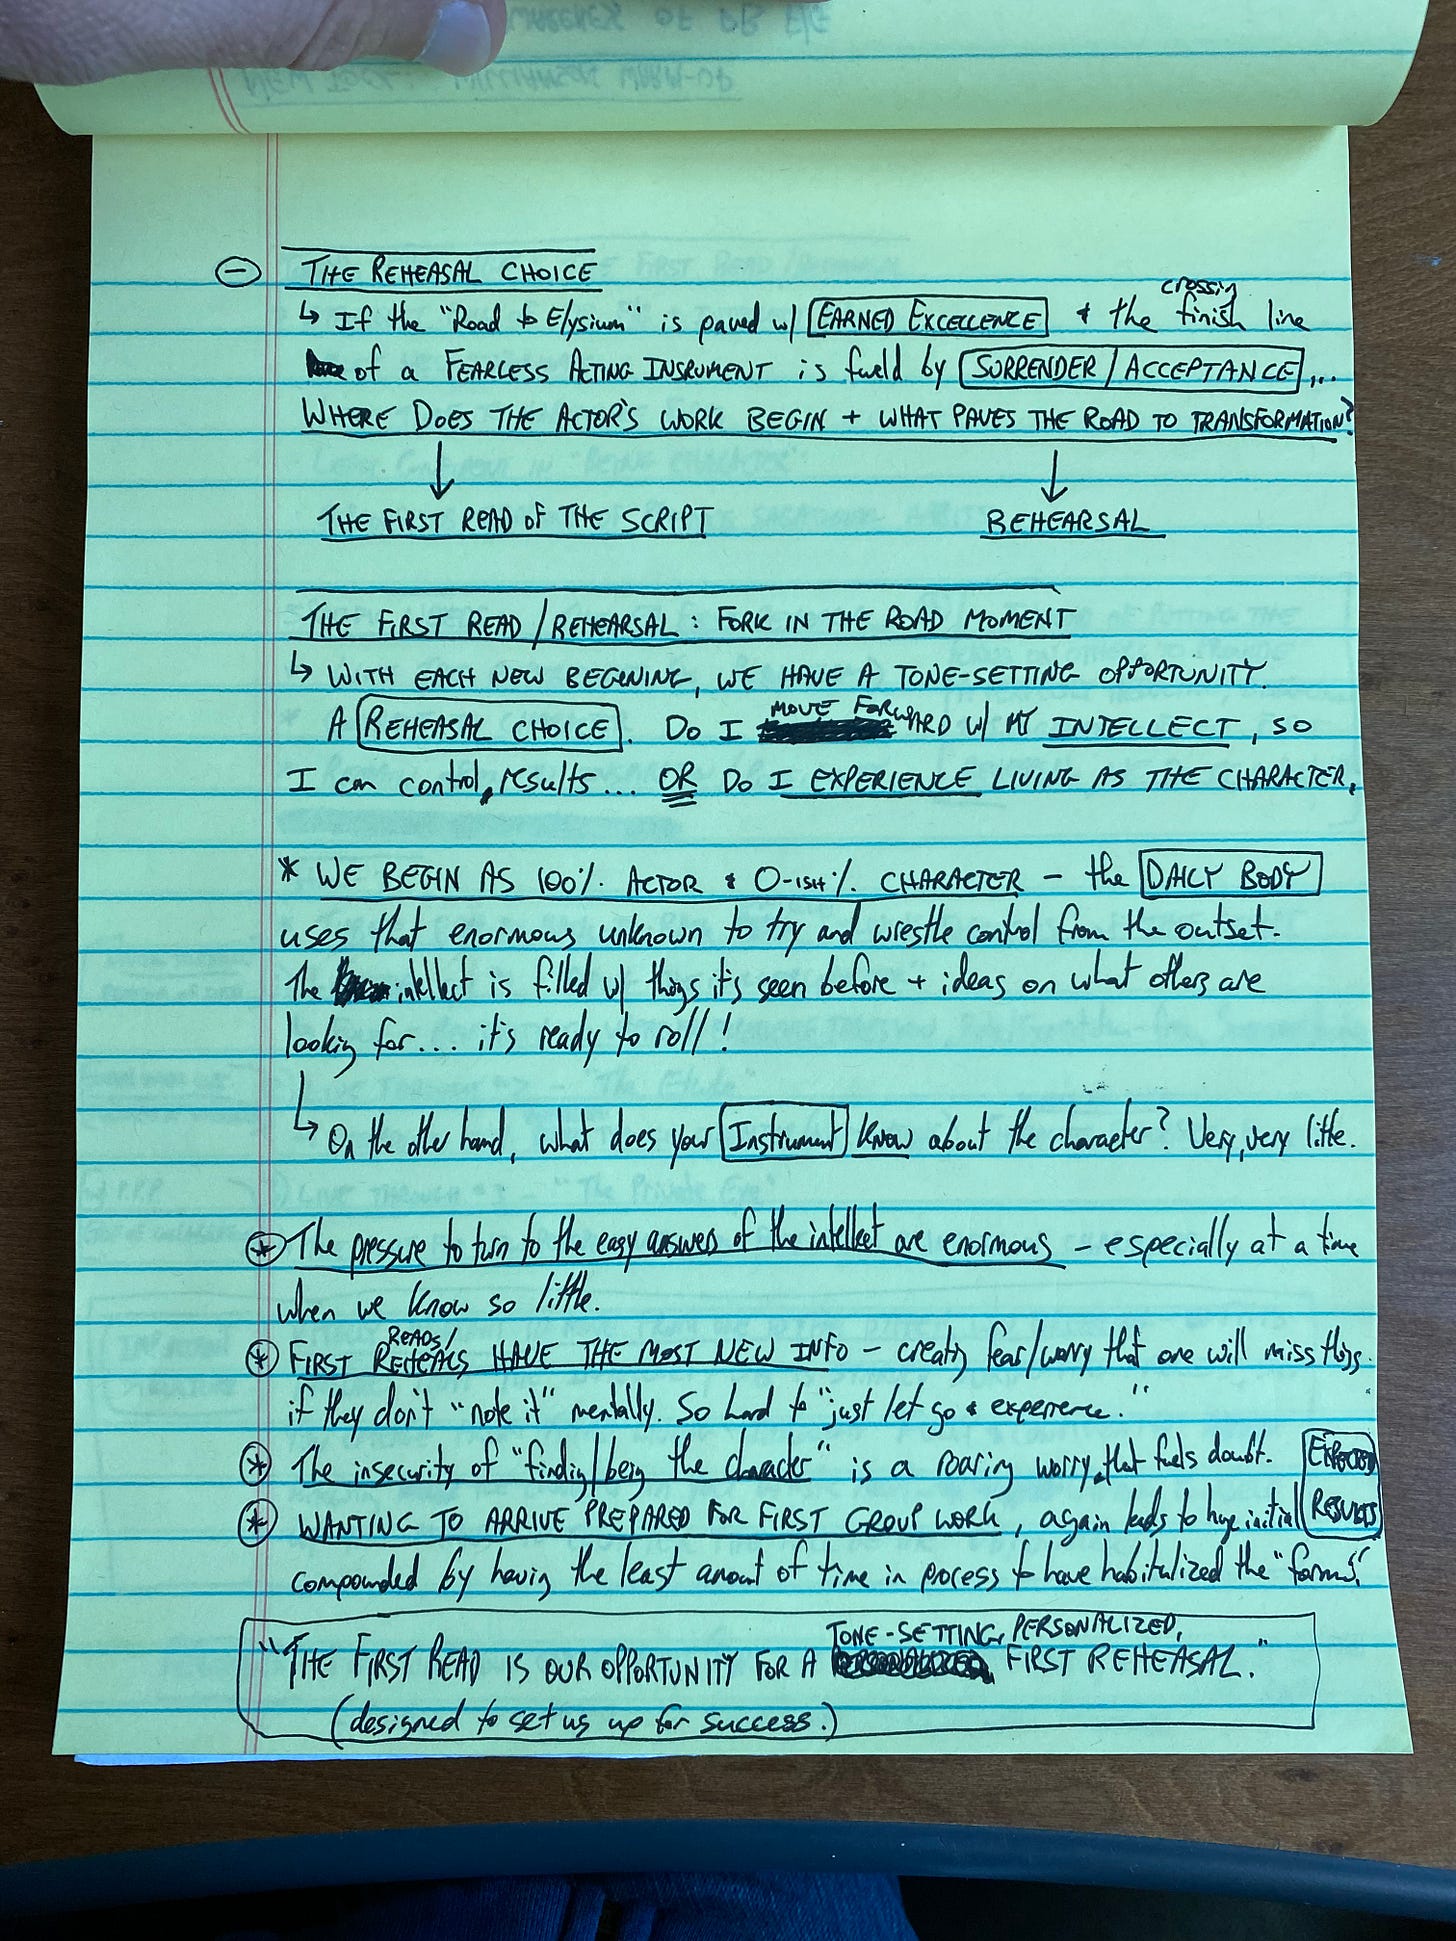 THE REHEASAL CHOICE
↳ If the "Road to Elysium" is paved w/ EARNED EXCELLENCE & the crossing finish line
of a FEARLESS ACTING INSRUMENT is fueld by SURRENDER/ACCEPTANCE...
WHERE DOES THE ACTOR'S WORK BEGIN + WHAT PAVES THE ROAD TO TRANSFORMATION?
THE FIRST READ OF THE SCRIPT REHEARSAL
THE FIRST READ/REHEARSAL: FORK IN THE ROAD MOMENT
↳ WITH EACH NEW BEGINING, WE HAVE A TONE-SETTING OPPORTUNITY.
A REHEASAL CHOICE. DO I MOVE FORWARD W/ MY INTELLECT, SO
I can control results... OR DO I EXPERIENCE LIVING AS THE CHARACTER.
* WE BEGIN AS 100% ACTOR & 0-ISH% CHARACTER - the DAILY BODY
uses that enormous unknown to try and wrestle control from the outset.
The intellect is filled w/ things it's seen before + ideas on what others are
looking for... it's ready to roll!
↳ On the other hand, what does your Instrument know about the character? Very, very little.
* The pressure to turn to the easy answers of the intellect are enormous - especially at a time
when we know so little.
* FIRST READS/ REHEALS HAVE THE MOST NEW INFO - creating fear/worry that one will miss things
if they don't "note it" mentally. So hard to "just let go & experience."
* The insecurity of "finding/being the character" is a roaring worry that fuels doubt.
* WANTING TO ARRIVE PREPARED FOR FIRST GROUP WORK, again leads to huge initial EXPECTED RESULTS
compounded by having the least amount of time in process to have habitualized the "forms".
"THE FIRST READ IS OUR OPPORTUNITY FOR A TONE-SETTING, PERSONALIZED, FIRST REHEASAL."
(designed to set us up for success.)